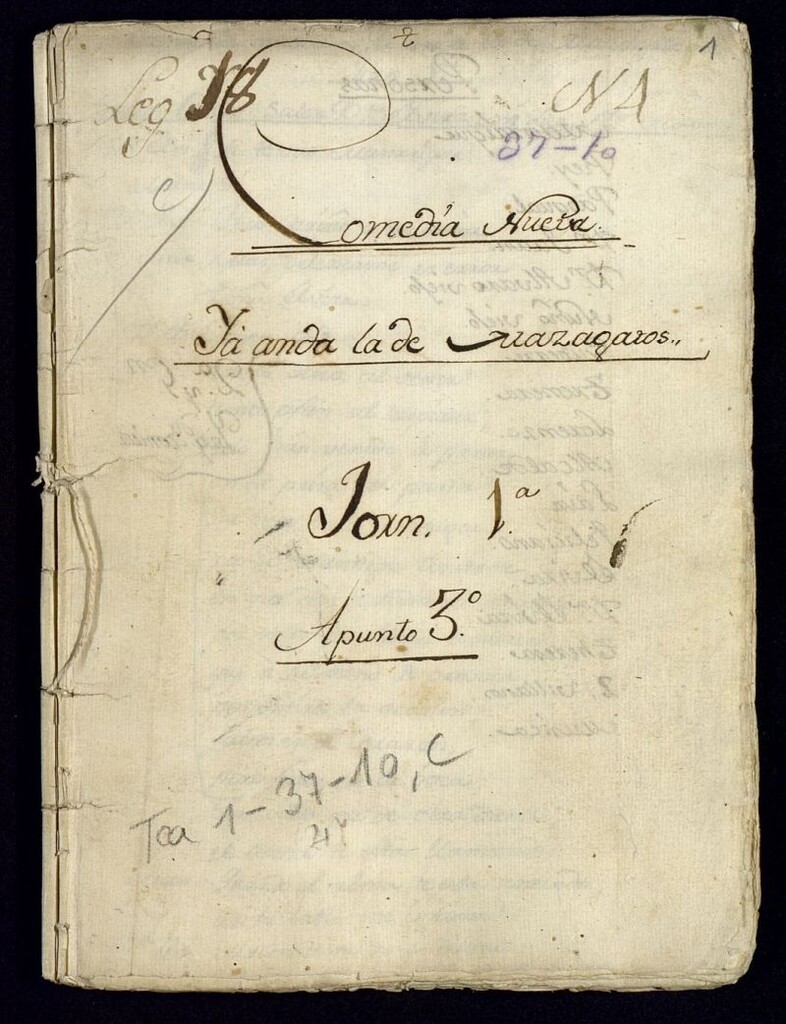 1
Leg 18
N 4
37-10
C
Comedia Nueba.
Ya anda la de Mazagatos.,,
Jorn. 1.ª
Apunto 3.º
Tea 1-37-10, C